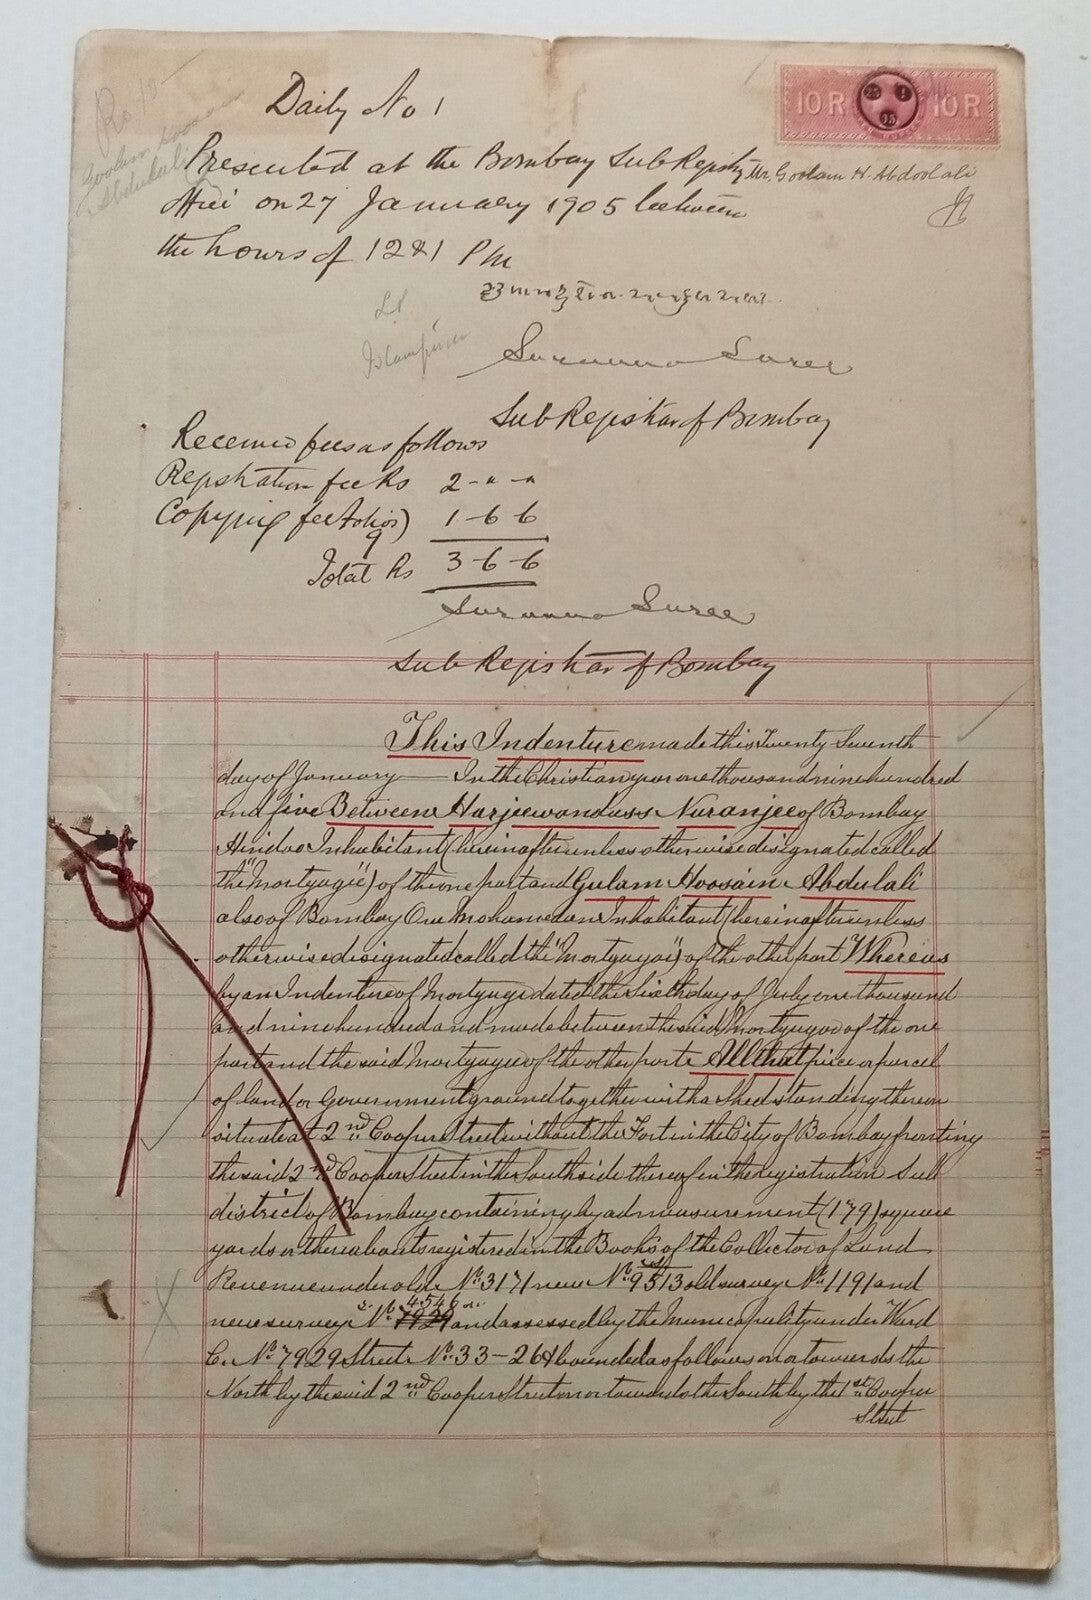 Daily No 1
10 R 10 R
25 1
05
Presented at the Bombay Sub Registry
Mr. Goolam H. Abdoolali
on 27 January 1905 between
the hours of 12 & 1 PM
Sub Registrar of Bombay
Received fees as follows
Registration fee Rs 2 - " - "
Copying fee folios) 1 - 6 - 6
9
Total Rs 3 - 6 - 6
Sub Registrar of Bombay
This Indenture made this Twenty Seventh
day of January In the Christian year one thousand nine hundred
and five Between Harjeewandass Naranjee of Bombay
Hindoo Inhabitant (hereinafter unless otherwise designated called
the "Mortgagee") of the one part and Gulam Hoosain Abdulali
also of Bombay Mohamedan Inhabitant (hereinafter unless
otherwise designated called the "Mortgagor") of the other part Whereas
by an Indenture of Mortgage dated the Sixth day of July one thousand
and nine hundred and made between the said Mortgagor of the one
part and the said Mortgagee of the other part All that piece or parcel
of land or Government ground together with a Shed standing thereon
situate at 2nd Cooper Street without the Fort in the City of Bombay fronting
the said 2nd Cooper Street in the South side thereof in the registration Sub
district of Bombay containing by admeasurement (179) square
yards or thereabouts registered in the Books of the Collector of Land
Revenue under old No 3171 new No 9513 old survey No 1191 and
4546
new survey No 7929 and assessed by the Municipality under Ward
C. No 7929 Street No 33-26 & bounded as follows on or towards the
North by the said 2nd Cooper Street on or towards the South by the 1st Cooper
Street